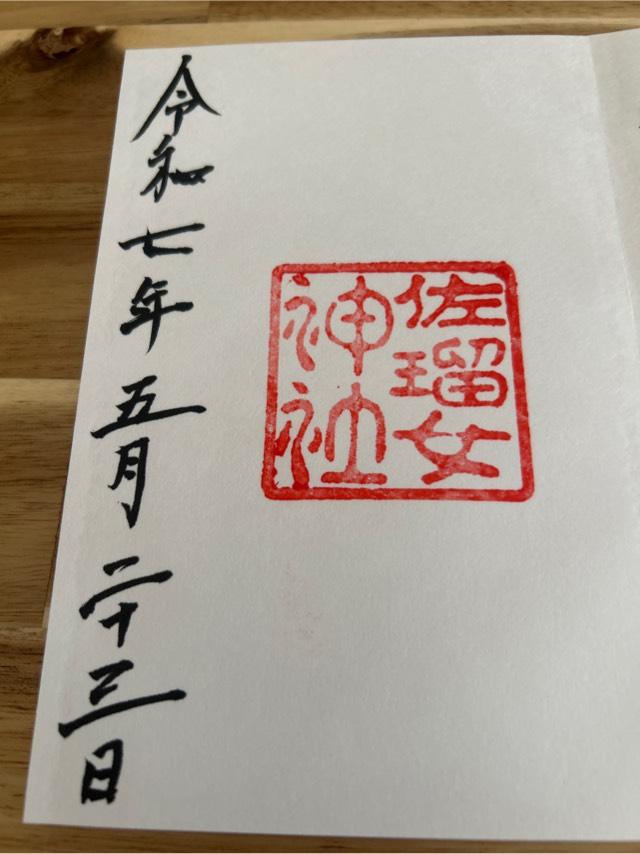 佐瑠女
神社
令和七年五月二十三日